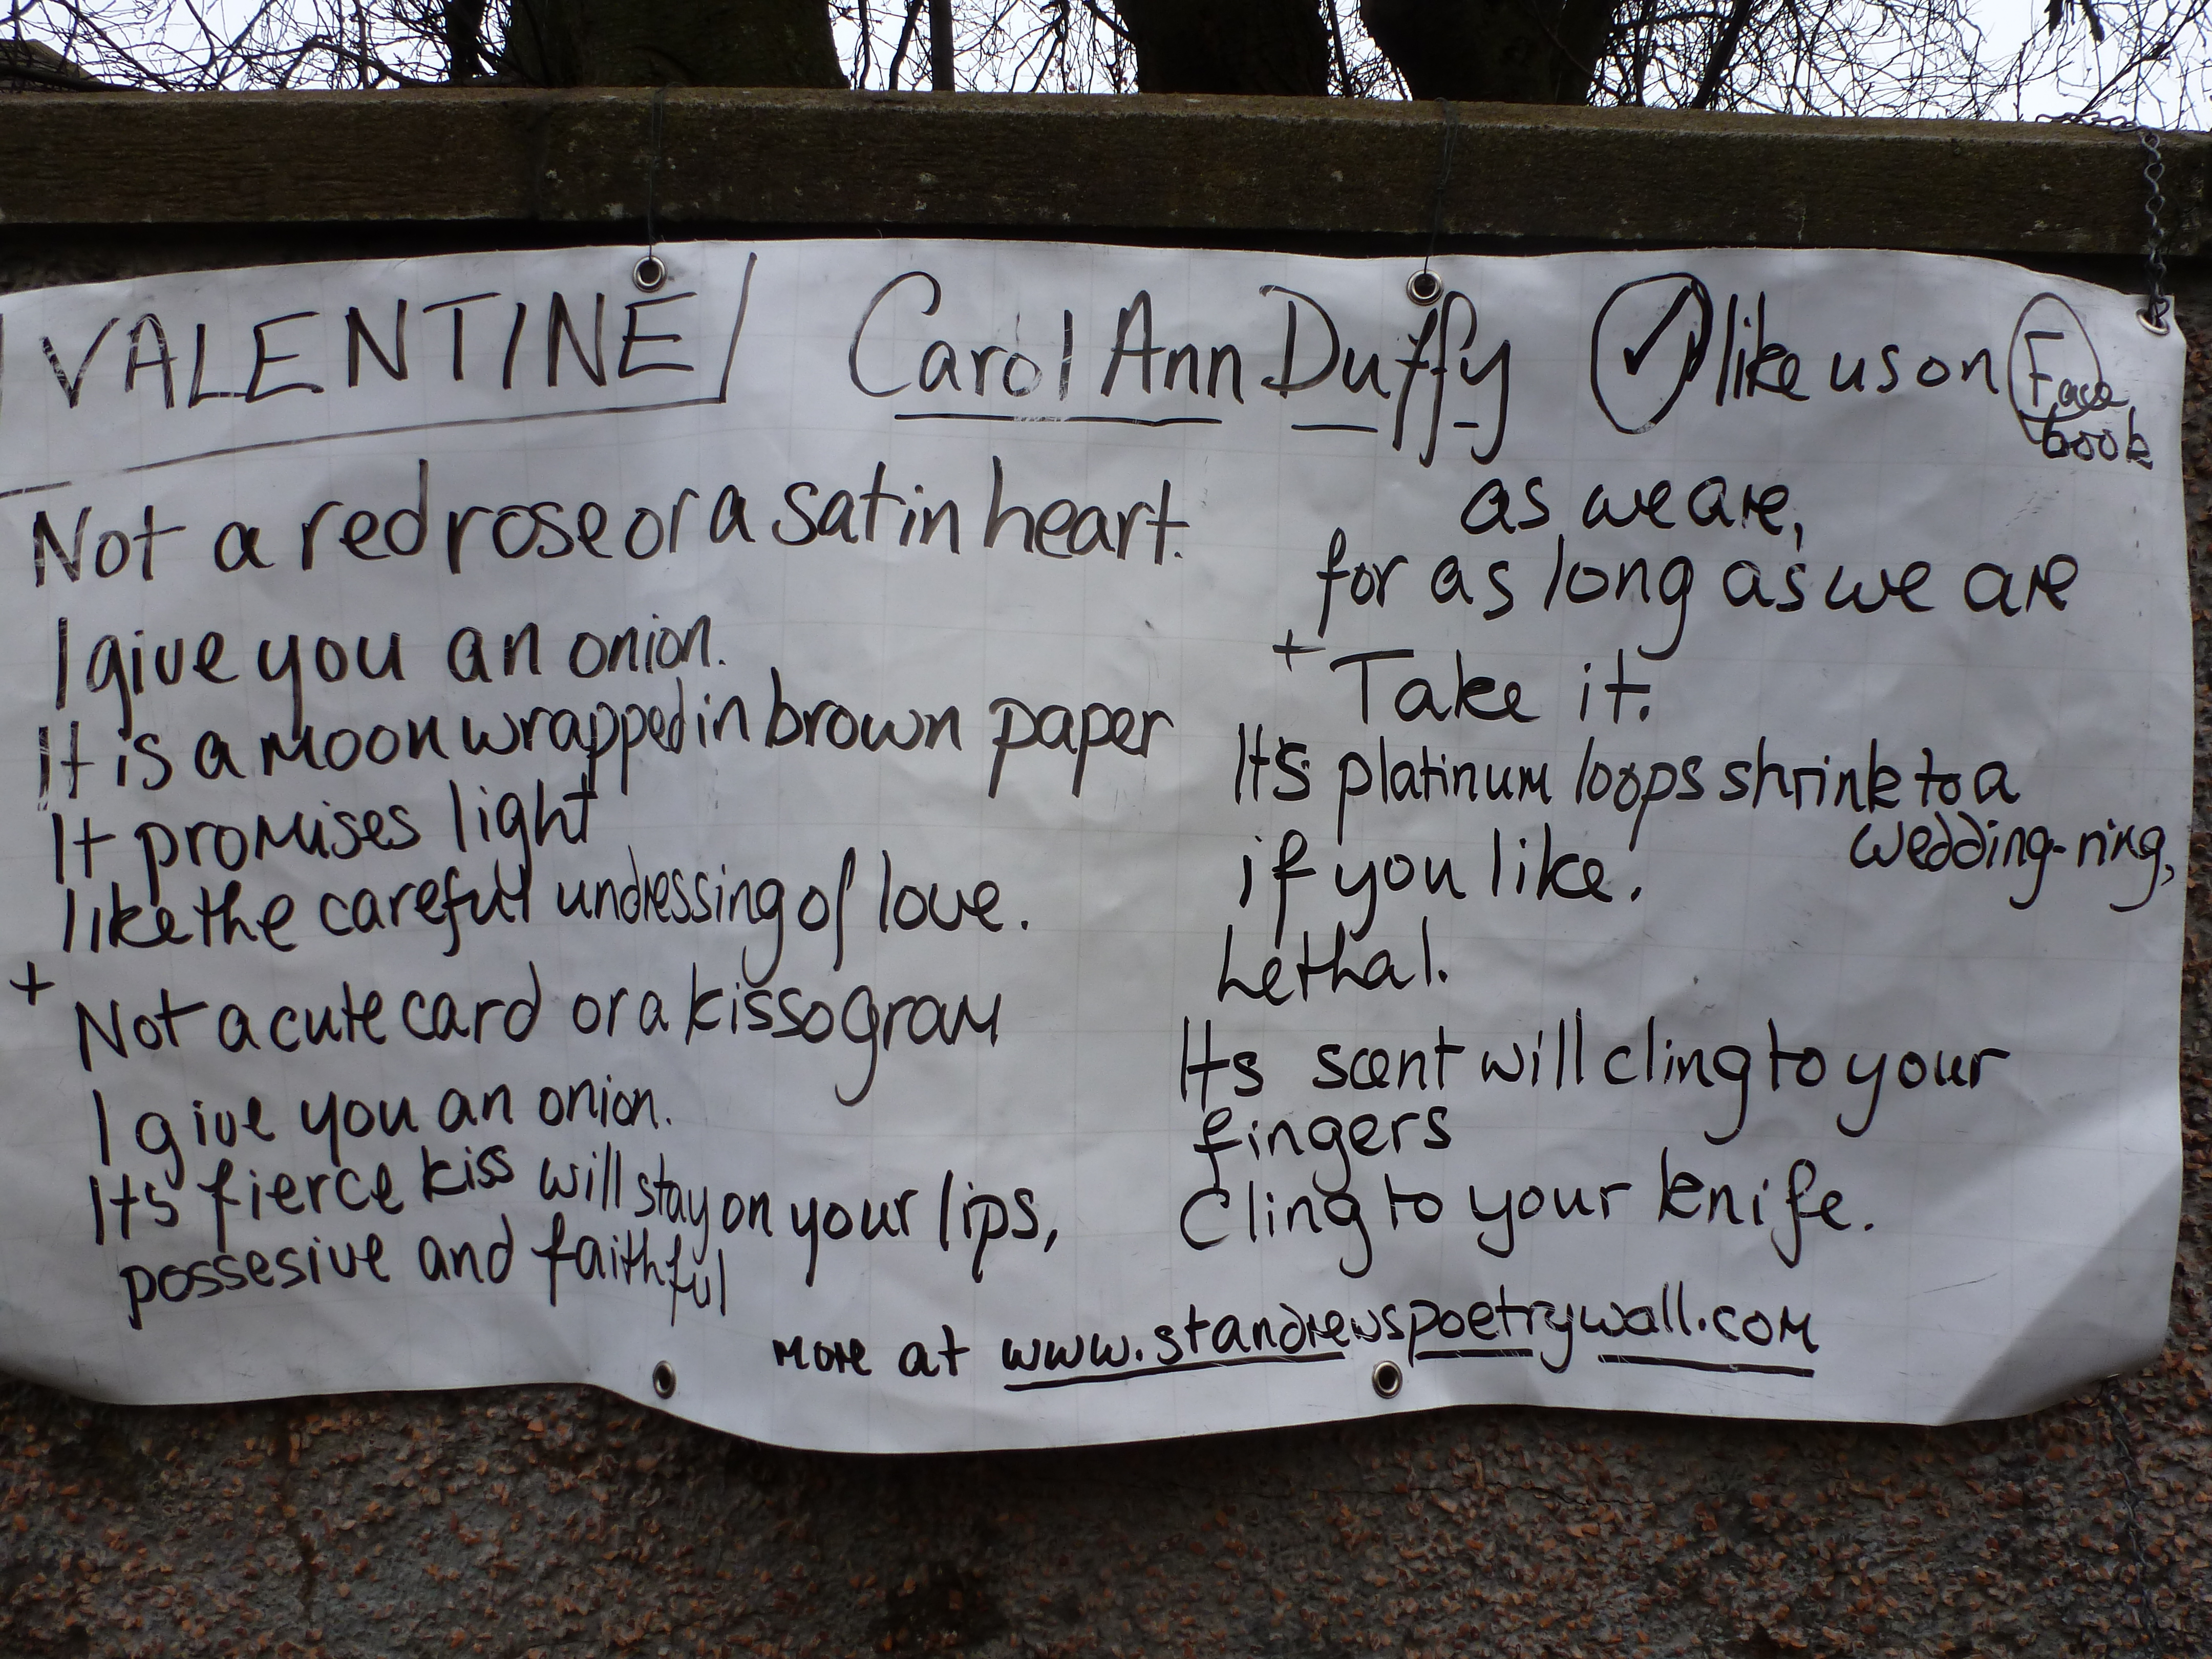 VALENTINE Carol Ann Duffy ✓ like us on Face
book
Not a red rose or a satin heart.
I give you an onion.
It is a moon wrapped in brown paper
It promises light
like the careful undressing of love.
+
Not a cute card or a kissogram
I give you an onion.
Its fierce kiss will stay on your lips,
possesive and faithful
as we are,
for as long as we are
+
Take it.
It's platinum loops shrink to a
wedding-ring,
if you like.
Lethal.
Its scent will cling to your
fingers
Cling to your knife.
more at www.standrewspoetrywall.com